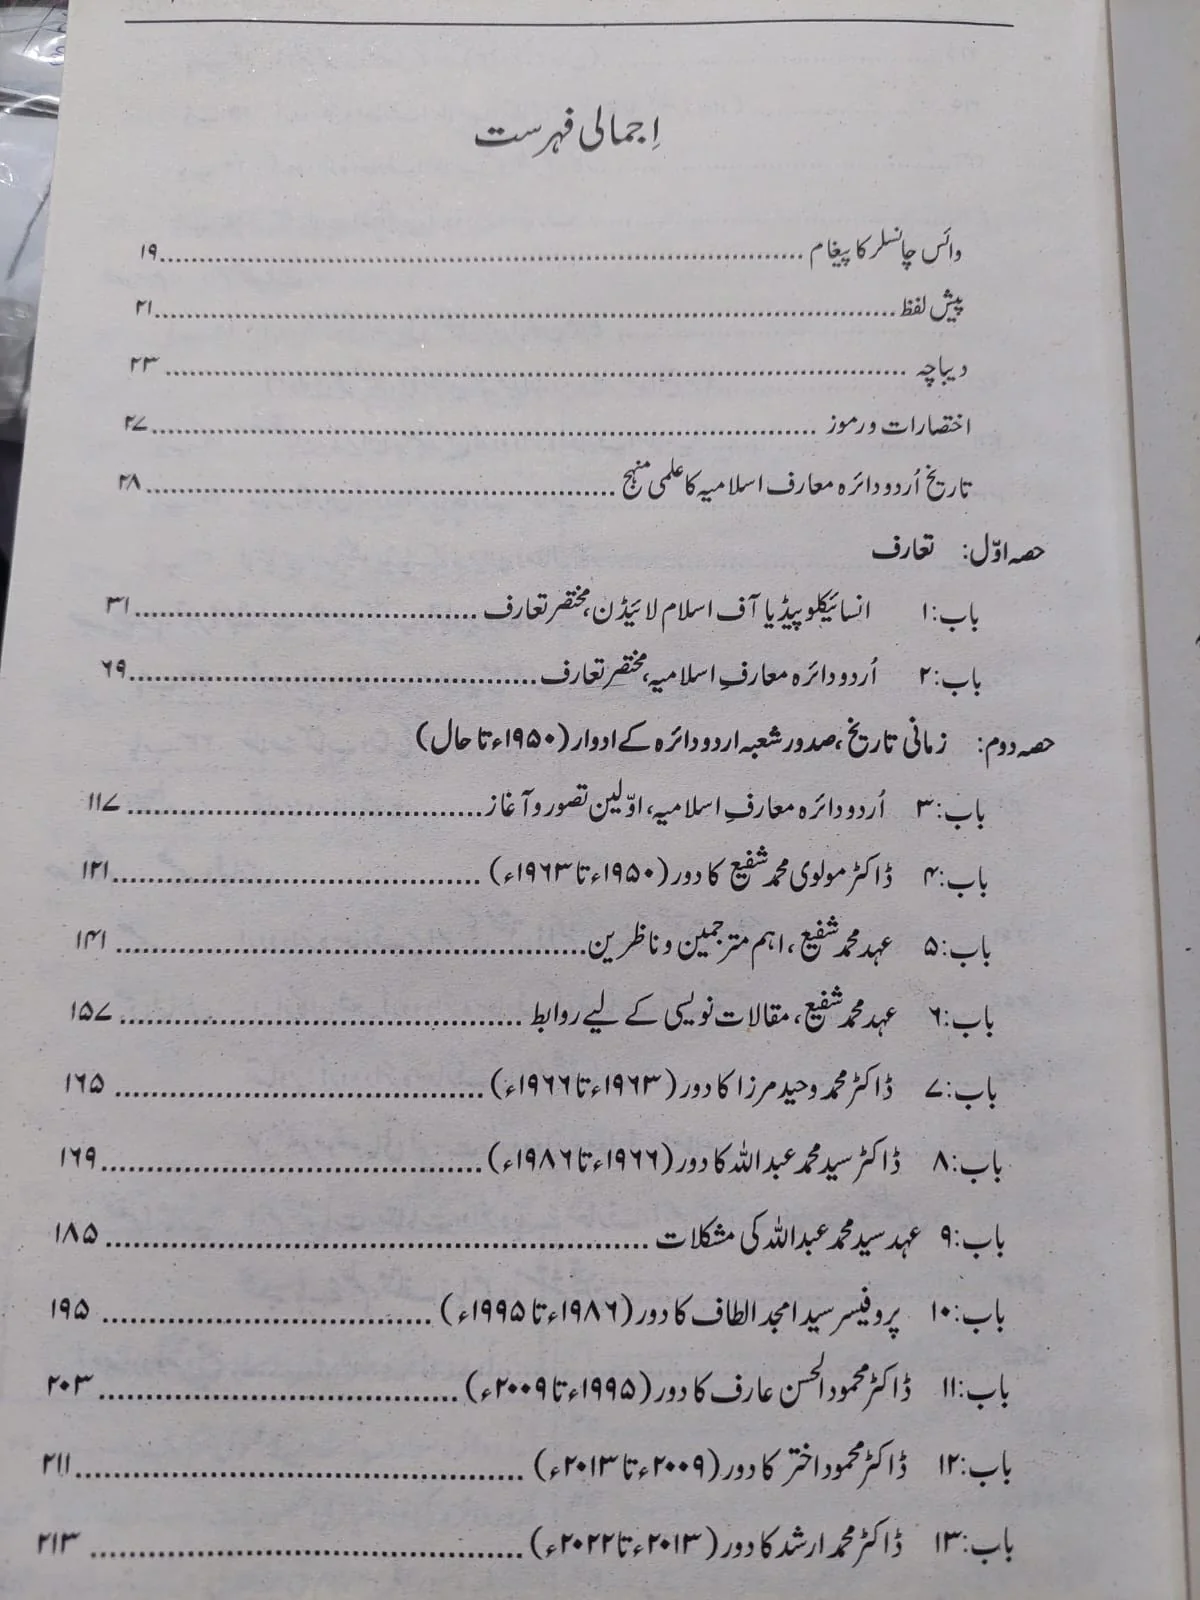 اِجمالی فہرست
وائس چانسلر کا پیغام ..... ۱۹
پیش لفظ ..... ۲۱
دیباچہ ..... ۲۳
اختصارات و رموز ..... ۲۷
تاریخ اُردو دائرہ معارف اسلامیہ کا علمی منہج ..... ۲۸
حصہ اوّل: تعارف
باب:۱ انسائیکلوپیڈیا آف اسلام لائیڈن، مختصر تعارف ..... ۳۱
باب:۲ اُردو دائرہ معارفِ اسلامیہ، مختصر تعارف ..... ۶۹
حصہ دوم: زمانی تاریخ، صدور شعبہ اردو دائرہ کے ادوار (۱۹۵۰ء تا حال)
باب:۳ اُردو دائرہ معارفِ اسلامیہ، اوّلین تصور و آغاز ..... ۱۱۷
باب:۴ ڈاکٹر مولوی محمد شفیع کا دور (۱۹۵۰ء تا ۱۹۶۳ء) ..... ۱۲۱
باب:۵ عہد محمد شفیع، اہم مترجمین و ناظرین ..... ۱۴۱
باب:۶ عہد محمد شفیع، مقالات نویسی کے لیے روابط ..... ۱۵۷
باب:۷ ڈاکٹر محمد وحید مرزا کا دور (۱۹۶۳ء تا ۱۹۶۶ء) ..... ۱۶۵
باب:۸ ڈاکٹر سید محمد عبداللہ کا دور (۱۹۶۶ء تا ۱۹۸۶ء) ..... ۱۶۹
باب:۹ عہد سید محمد عبداللہ کی مشکلات ..... ۱۸۵
باب:۱۰ پروفیسر سید امجد الطاف کا دور (۱۹۸۶ء تا ۱۹۹۵ء) ..... ۱۹۵
باب:۱۱ ڈاکٹر محمود الحسن عارف کا دور (۱۹۹۵ء تا ۲۰۰۹ء) ..... ۲۰۳
باب:۱۲ ڈاکٹر محمود اختر کا دور (۲۰۰۹ء تا ۲۰۱۳ء) ..... ۲۱۱
باب:۱۳ ڈاکٹر محمد ارشد کا دور (۲۰۱۳ء تا ۲۰۲۲ء) ..... ۲۱۳